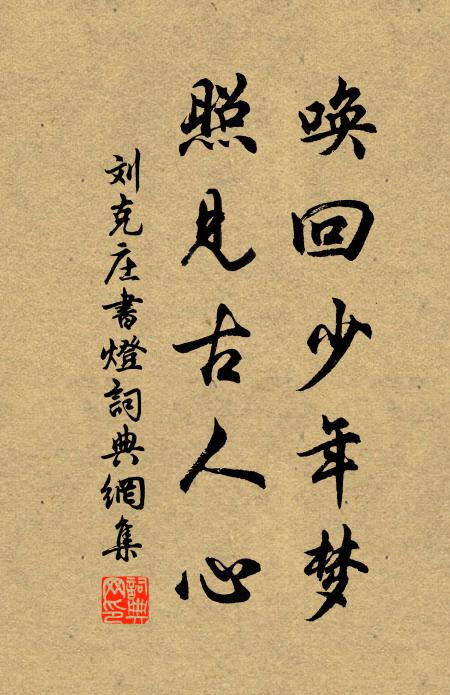 唤回少年梦
照见古人心
刘克庄书燈詞典網集
詞典网印